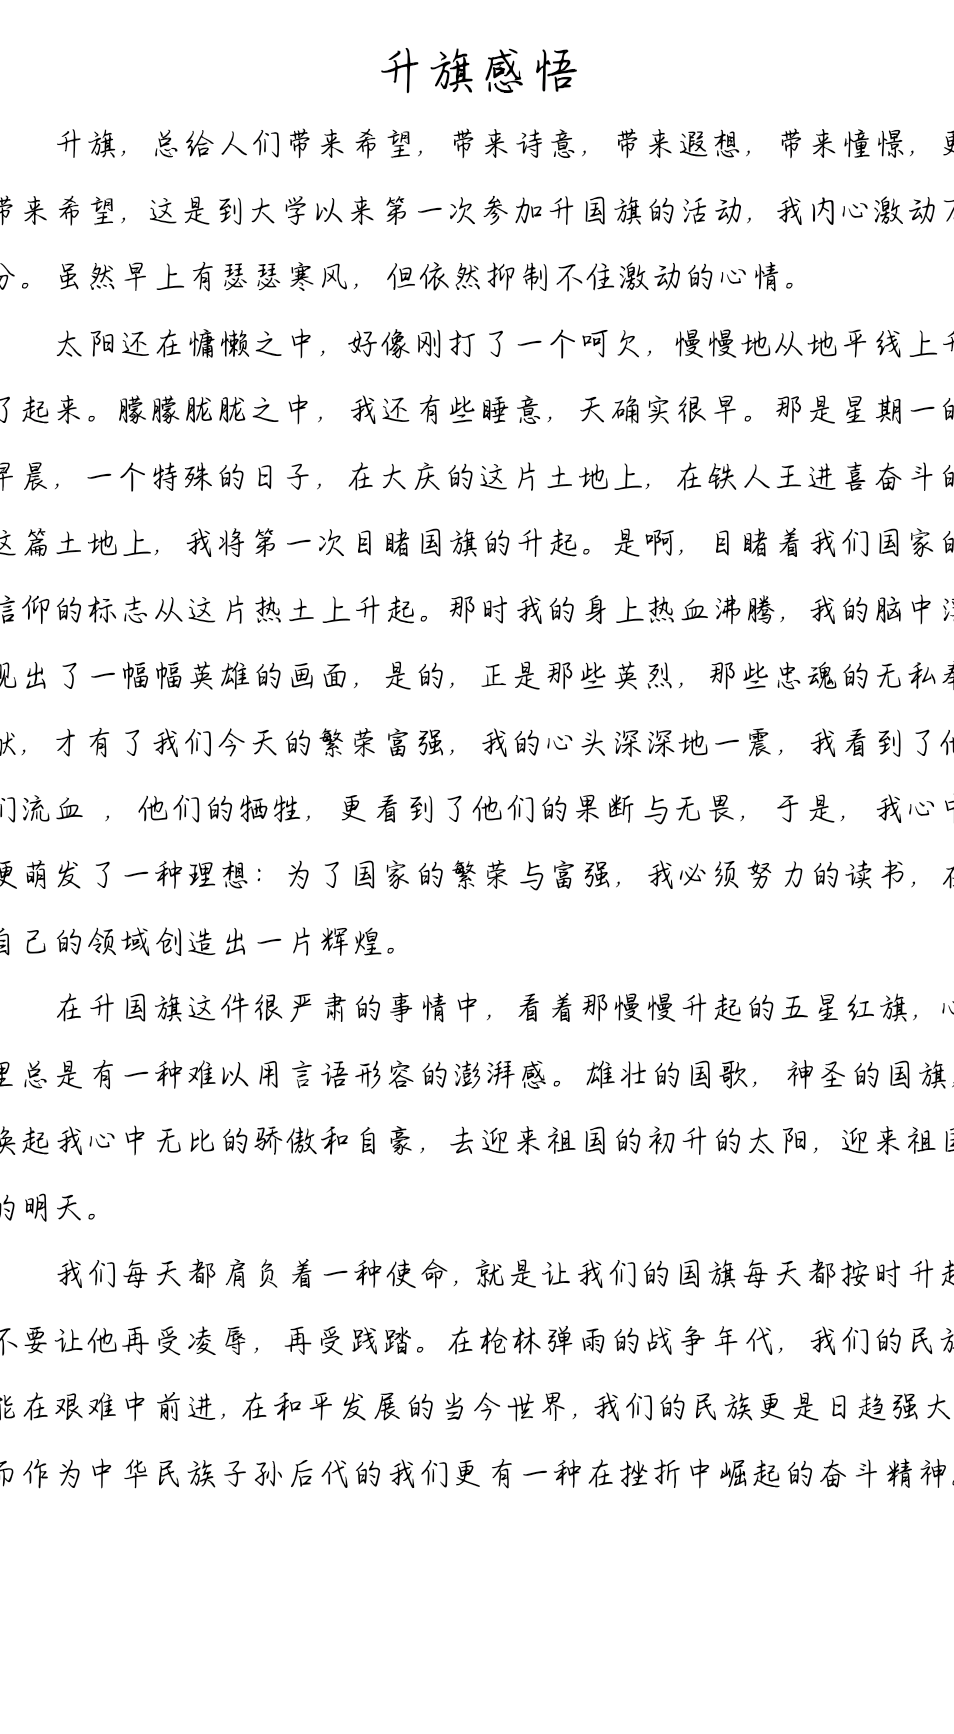 升旗感悟
升旗，总给人们带来希望，带来诗意，带来遐想，带来憧憬，更
带来希望，这是到大学以来第一次参加升国旗的活动，我内心激动万
分。虽然早上有瑟瑟寒风，但依然抑制不住激动的心情。
太阳还在慵懒之中，好像刚打了一个呵欠，慢慢地从地平线上升
了起来。朦朦胧胧之中，我还有些睡意，天确实很早。那是星期一的
早晨，一个特殊的日子，在大庆的这片土地上，在铁人王进喜奋斗的
这篇土地上，我将第一次目睹国旗的升起。是啊，目睹着我们国家的
信仰的标志从这片热土上升起。那时我的身上热血沸腾，我的脑中浮
现出了一幅幅英雄的画面，是的，正是那些英烈，那些忠魂的无私奉
献，才有了我们今天的繁荣富强，我的心头深深地一震，我看到了他
们流血 ，他们的牺牲，更看到了他们的果断与无畏，于是，我心中
便萌发了一种理想：为了国家的繁荣与富强，我必须努力的读书，在
自己的领域创造出一片辉煌。
在升国旗这件很严肃的事情中，看着那慢慢升起的五星红旗，心
里总是有一种难以用言语形容的澎湃感。雄壮的国歌，神圣的国旗，
唤起我心中无比的骄傲和自豪，去迎来祖国的初升的太阳，迎来祖国
的明天。
我们每天都肩负着一种使命，就是让我们的国旗每天都按时升起
不要让他再受凌辱，再受践踏。在枪林弹雨的战争年代，我们的民族
能在艰难中前进，在和平发展的当今世界，我们的民族更是日趋强大
而作为中华民族子孙后代的我们更有一种在挫折中崛起的奋斗精神。